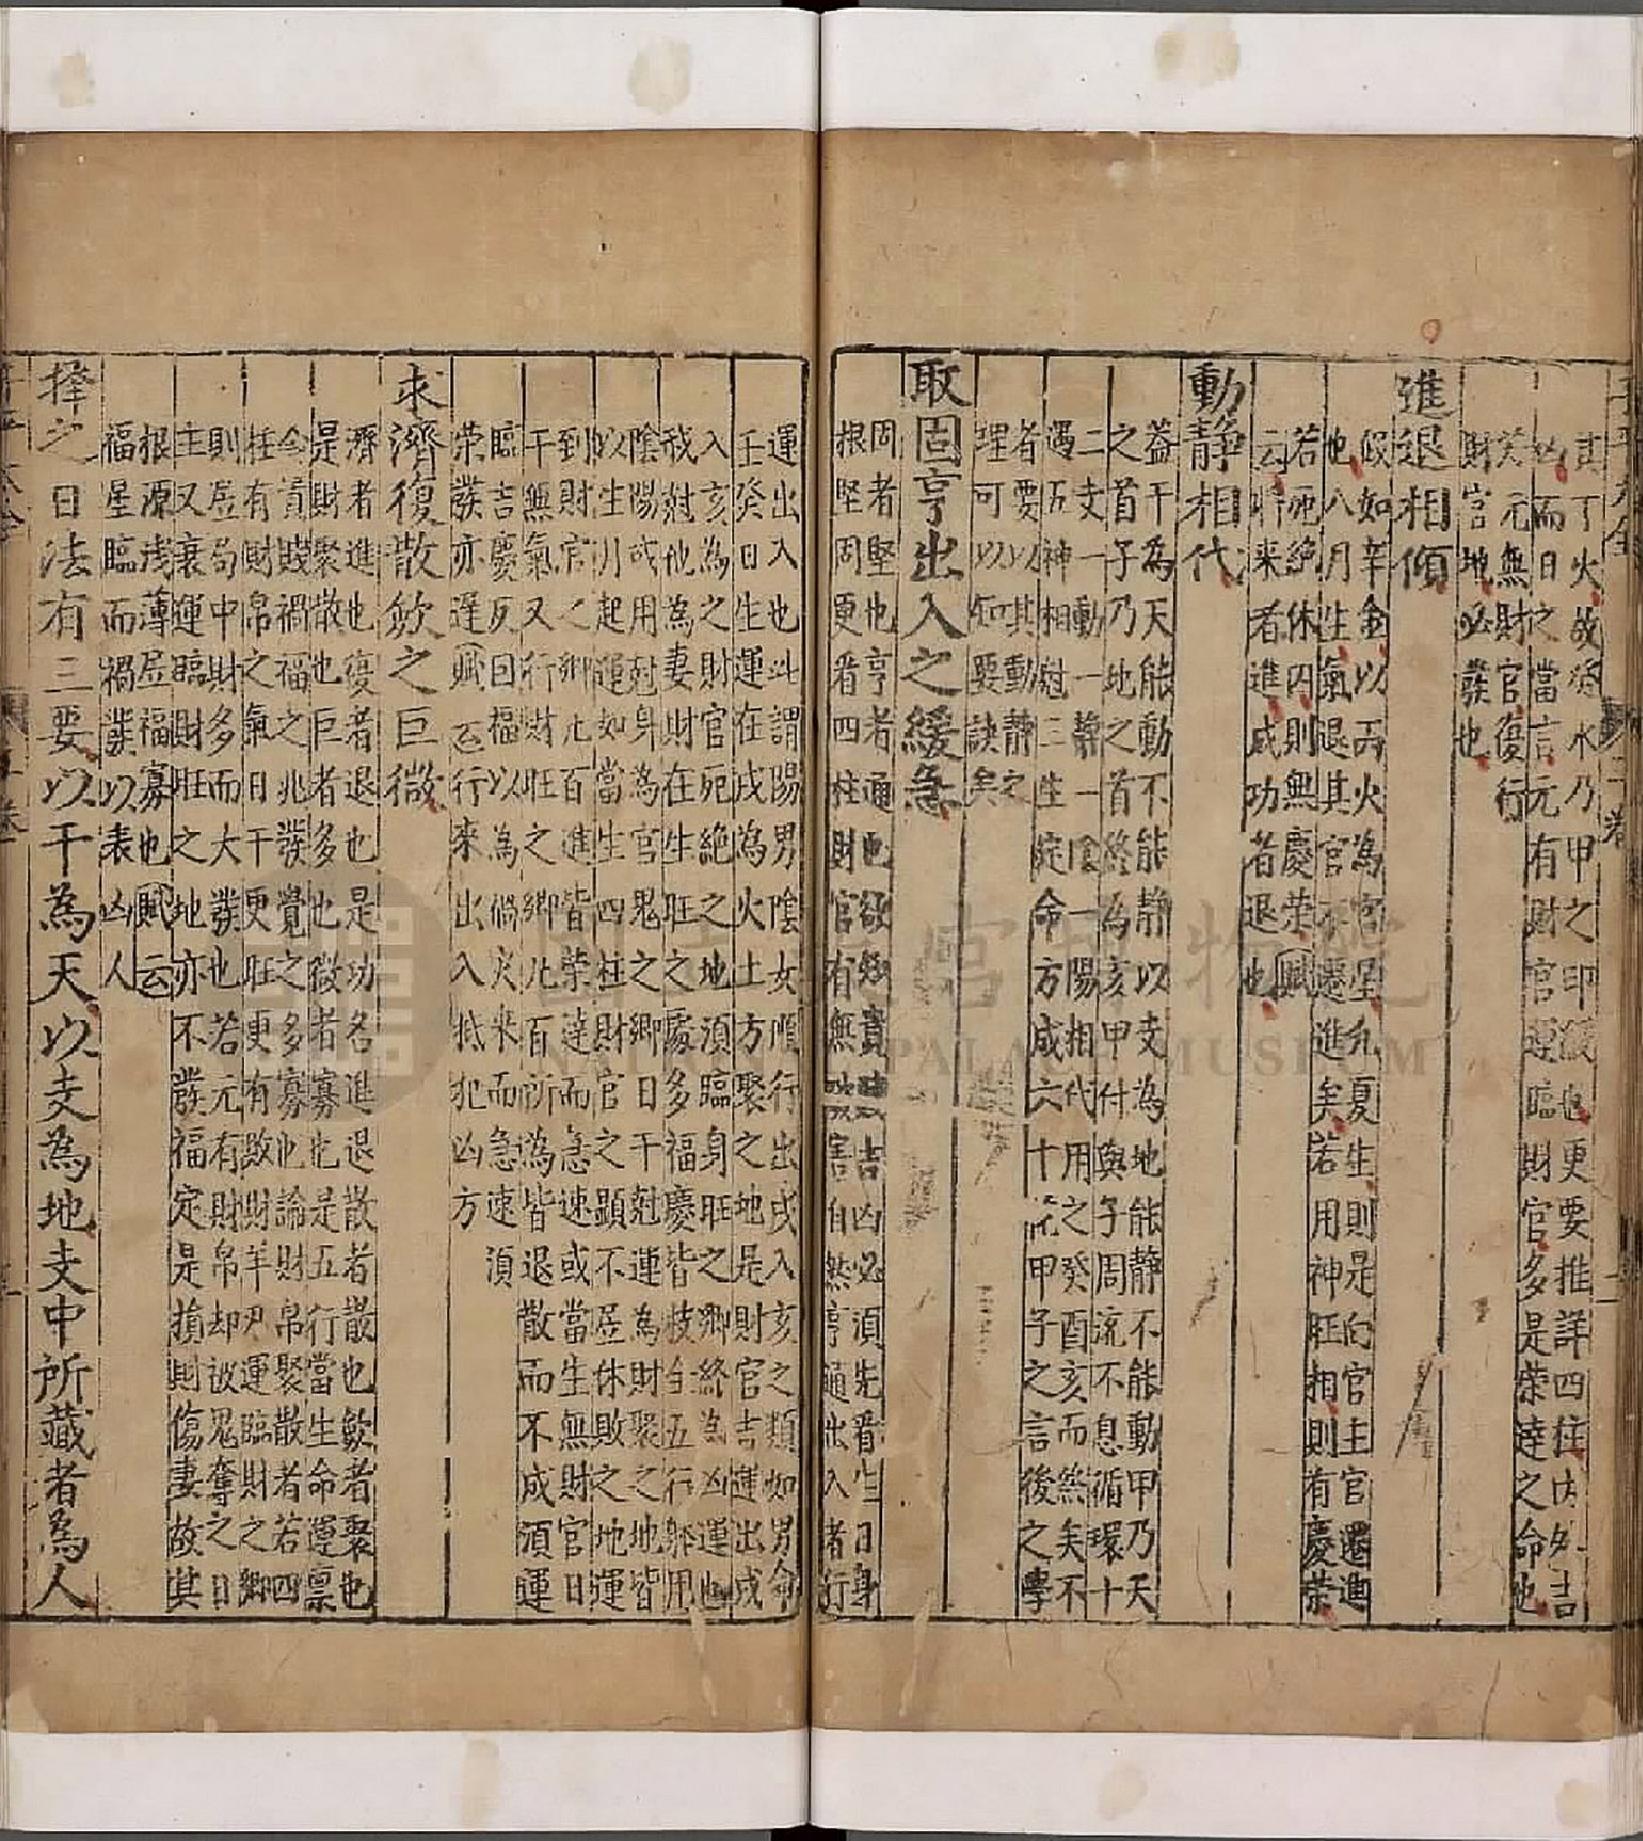 丁火故癸水乃甲之印綬也更要推詳四柱内外吉
凶而日之當言元有財官運臨財官多是荣達之命也
元無財官復行
財官地必發也
進退相傾
假如辛金以丙火為官星九夏生則是向官主官還進
也八月生氣退其官不還進矣若用神旺相則有慶荣
若死絶休囚則無慶荣賦
云將来者進成功者退也
動靜相代
盖干為天能動不能静以支為地能静不能動甲乃天
之首子乃地之首終為亥甲付與子周流不息循環十
二支一動一静一陰一陽相代用之癸酉亥而然矣不
遇五神相尅三生定命方成六十花甲子之言後之學
者要以其動静之
理可以知要訣矣
取固亨出入之緩急
固者堅也亨者通也欲知貴賤吉凶必湏先看生日身
根堅固更看四柱財官有無破害自然亨通出入者行
運出入也此謂陽男陰女順行出戌入亥之類如男命
壬癸日生運在戌為火土方聚之地是財官吉運出戌
入亥為之財官死絶之地湏臨身旺之鄉終為凶運也
我尅他為妻財在生旺之處多福慶皆技全五行躰用
陰陽或用尅身為官鬼之鄉日干尅運為財聚之地皆
以生月起運如當生四柱財官之顯不居休敗之地運
到財官之鄉九百進皆荣達而急速或當生無財官日
干無氣又行財旺之鄉凡百所為皆退散而不成湏運
臨吉慶反因福以為倘灾来而急速湏
荣發亦遅賦云行來出入抵犯凶方
求濟復散歛之巨微
濟者進也復者退也是功名進退散者散也歛者聚也
是財聚散也巨者多也微者寡也是五行當生命運禀
今貴賤禍福之兆發覺之多寡也論財帛聚散者若四
柱有財帛之氣日干更旺更有敗財羊刃運臨財之鄉
則居局中財多而大發也若元有財帛却被鬼奪之日
主又衰運臨財旺之地亦不發福定是損財傷妻故其
根源浅薄居福寡也賦云
福星臨而禍發以表凶人
擇之日法有三要以干為天以支為地支中所藏者為人